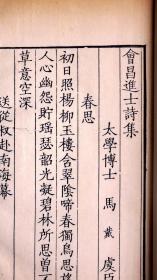 會昌進士詩集
太學博士 馬戴 虞
春思
初日照楊柳玉樓含翠陰啼春獨鳥思
人心幽怨貯瑤瑟韶光凝碧林所思曾
草意空深
送從叔赴南海幕